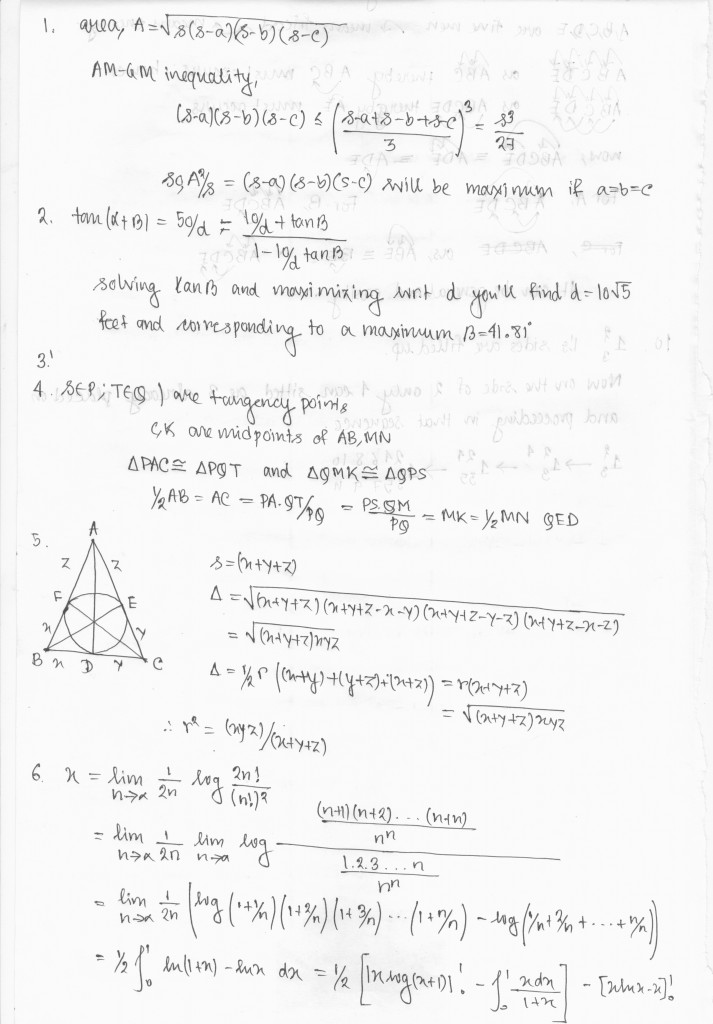 1. area, A = √s(s-a)(s-b)(s-c)
AM-GM inequality,
(s-a)(s-b)(s-c) ≤ ((s-a+s-b+s-c)/3)^3 = s^3/27
so A²/s = (s-a)(s-b)(s-c) will be maximum if a=b=c
2. tan(α+β) = 50/d = (10/d + tanβ)/(1 - 10/d tanβ)
solving tanβ and maximizing wrt d you'll find d=10√5
feet and corresponding to a maximum β=41.81°
3.
4. S∈P; T∈Q ) are tangency points
C,K are midpoints of AB, MN
ΔPAC ≅ ΔPQT and ΔQMK ≅ ΔQPS
½AB = AC = PA.QT/PQ = PS.QM/PQ = MK = ½MN QED
5.
A
z z
F E
x y
B x D y C
s = (x+y+z)
Δ = √(x+y+z)(x+y+z-x-y)(x+y+z-y-z)(x+y+z-x-z)
= √(x+y+z)xyz
Δ = ½ r ((x+y)+(y+z)+(x+z)) = r(x+y+z)
= √(x+y+z)xyz
∴ r² = (xyz)/(x+y+z)
6. x = lim n→α 1/2n log 2n!/(n!)²
= lim n→α 1/2n lim n→α log ((n+1)(n+2)...(n+n)/nⁿ)/(1.2.3...n/nⁿ)
= lim n→α 1/2n (log(1+1/n)(1+2/n)(1+3/n)...(1+n/n) - log(1/n+2/n+...+n/n))
= ½ ∫₀¹ ln(1+x) - lnx dx = ½ [|x log(x+1)|₀¹ - ∫₀¹ xdx/1+x] - [xlnx-x]₀¹